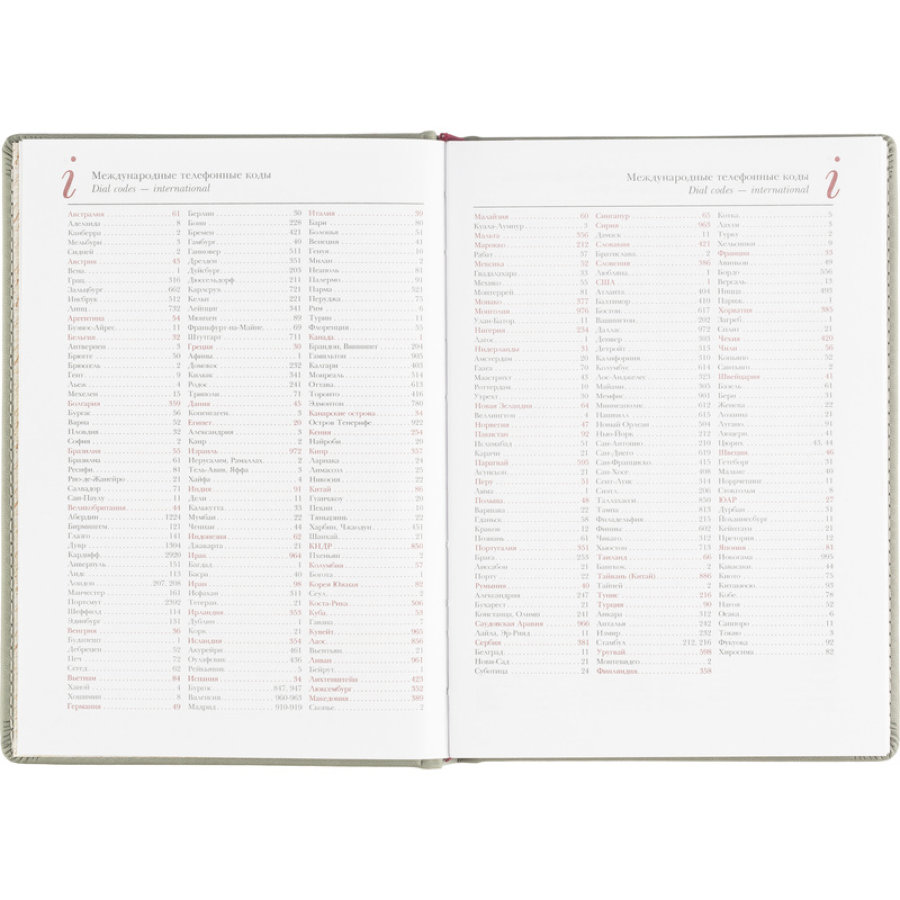 i
Международные телефонные коды
Dial codes — international
Австралия 61
Аделаида 8
Канберра 2
Мельбурн 3
Сидней 2
Австрия 43
Вена 1
Грац 316
Зальцбург 662
Инсбрук 512
Линц 732
Аргентина 54
Буэнос-Айрес 11
Бельгия 32
Антверпен 3
Брюгге 50
Брюссель 2
Гент 9
Льеж 4
Мехелен 15
Болгария 359
Бургас 56
Варна 52
Пловдив 32
София 2
Бразилия 55
Бразилиа 61
Ресифи 81
Рио-де-Жанейро 21
Салвадор 71
Сан-Паулу 11
Великобритания 44
Абердин 1224
Бирмингем 121
Глазго 141
Дувр 1304
Кардифф 2920
Ливерпуль 151
Лидс 113
Лондон 207, 208
Манчестер 161
Портсмут 2392
Шеффилд 114
Эдинбург 131
Венгрия 36
Будапешт 1
Дебрецен 52
Печ 72
Сегед 62
Вьетнам 84
Ханой 4
Хошимин 8
Германия 49
Берлин 30
Бонн 228
Бремен 421
Гамбург 40
Ганновер 511
Дрезден 351
Дуйсбург 203
Дюссельдорф 211
Карлсруэ 721
Кельн 221
Лейпциг 341
Мюнхен 89
Франкфурт-на-Майне 69
Штутгарт 711
Греция 30
Афины 1
Домокос 232
Килкис 341
Родос 241
Триполи 71
Дания 45
Копенгаген 3
Египет 20
Александрия 3
Каир 2
Израиль 972
Иерусалим, Рамаллах 2
Тель-Авив, Яффа 3
Хайфа 4
Индия 91
Дели 11
Калькутта 33
Мумбаи 22
Ченнаи 44
Индонезия 62
Джакарта 21
Ирак 964
Багдад 1
Басра 40
Иран 98
Исфахан 311
Тегеран 21
Ирландия 353
Дублин 1
Корк 21
Исландия 354
Акурейри 461
Оулафсвик 436
Рейкьявик 5
Испания 34
Бургос 847, 947
Валенсия 960-963
Мадрид 910-919
Италия 39
Бари 80
Болонья 51
Венеция 41
Генуя 10
Милан 2
Неаполь 81
Палермо 91
Парма 521
Перуджа 75
Рим 6
Турин 11
Флоренция 55
Канада 1
Брандон, Виннипег 204
Гамильтон 905
Калгари 403
Монреаль 514
Оттава 613
Торонто 416
Эдмонтон 780
Канарские острова 34
Остров Тенерифе 922
Кения 254
Найроби 20
Кипр 357
Ларнака 24
Лимассол 25
Никосия 22
Китай 86
Гуанчжоу 20
Пекин 10
Тяньцзинь 22
Харбин, Чжаодун 451
Шанхай 21
КНДР 850
Пхеньян 2
Колумбия 57
Богота 1
Корея Южная 82
Сеул 2
Коста-Рика 506
Куба 53
Гавана 7
Кувейт 965
Лаос 856
Вьентьян 21
Ливан 961
Бейрут 1
Лихтенштейн 423
Люксембург 352
Македония 389
Скопье 2
Международные телефонные коды
Dial codes — international
i
Малайзия 60
Куала-Лумпур 3
Мальта 356
Марокко 212
Рабат 37
Мексика 52
Гвадалахара 33
Мехико 55
Монтеррей 81
Монако 377
Монголия 976
Улан-Батор 11
Нигерия 234
Лагос 1
Нидерланды 31
Амстердам 20
Гаага 70
Маастрихт 43
Роттердам 10
Утрехт 30
Новая Зеландия 64
Веллингтон 4
Норвегия 47
Пакистан 92
Исламабад 51
Карачи 21
Парагвай 595
Асунсьон 21
Перу 51
Лима 1
Польша 48
Варшава 22
Гданьск 58
Краков 12
Познань 61
Португалия 351
Брага 253
Лиссабон 21
Порту 22
Румыния 40
Александрия 247
Бухарест 21
Констанца, Олимп 241
Саудовская Аравия 966
Лайла, Эр-Рияд 11
Сербия 381
Белград 11
Нови-Сад 21
Суботица 24
Сингапур 65
Сирия 963
Дамаск 11
Словакия 421
Братислава 2
Словения 386
Любляна 1
США 1
Атланта 404
Балтимор 410
Бостон 617
Вашингтон 202
Даллас 972
Денвер 303
Детройт 313
Калифорния 310
Колумбус 614
Лос-Анджелес 323
Майами 305
Мемфис 901
Миннеаполис 612
Нашвилл 615
Новый Орлеан 504
Нью-Йорк 212
Сан-Антонио 210
Сан-Диего 619
Сан-Франциско 415
Сан-Хосе 408
Сент-Луис 314
Сиэтл 206
Таллахасси 850
Тампа 813
Филадельфия 215
Финикс 602
Чикаго 312
Хьюстон 713
Таиланд 66
Бангкок 2
Тайвань (Китай) 886
Тайпей 2
Тунис 216
Турция 90
Анкара 312
Анталья 242
Измир 232
Стамбул 212, 216
Уругвай 598
Монтевидео 2
Финляндия 358
Котка 5
Лахти 3
Турку 2
Хельсинки 9
Франция 33
Авиньон 49
Бордо 556
Версаль 13
Ницца 493
Париж 1
Хорватия 385
Загреб 1
Сплит 21
Чехия 420
Чили 56
Кокимбо 52
Сантьяго 2
Швейцария 41
Базель 61
Берн 31
Женева 22
Лозанна 21
Лугано 91
Люцерн 41
Цюрих 43, 44
Швеция 46
Гетеборг 31
Мальмё 40
Норрчепинг 11
Стокгольм 8
ЮАР 27
Дурбан 31
Йоханнесбург 11
Кейптаун 21
Претория 12
Япония 81
Иокогама 995
Кавасаки 44
Киото 75
Китакюсю 93
Кобе 78
Нагоя 52
Осака 6
Саппоро 11
Токио 3
Фукуока 92
Хиросима 82